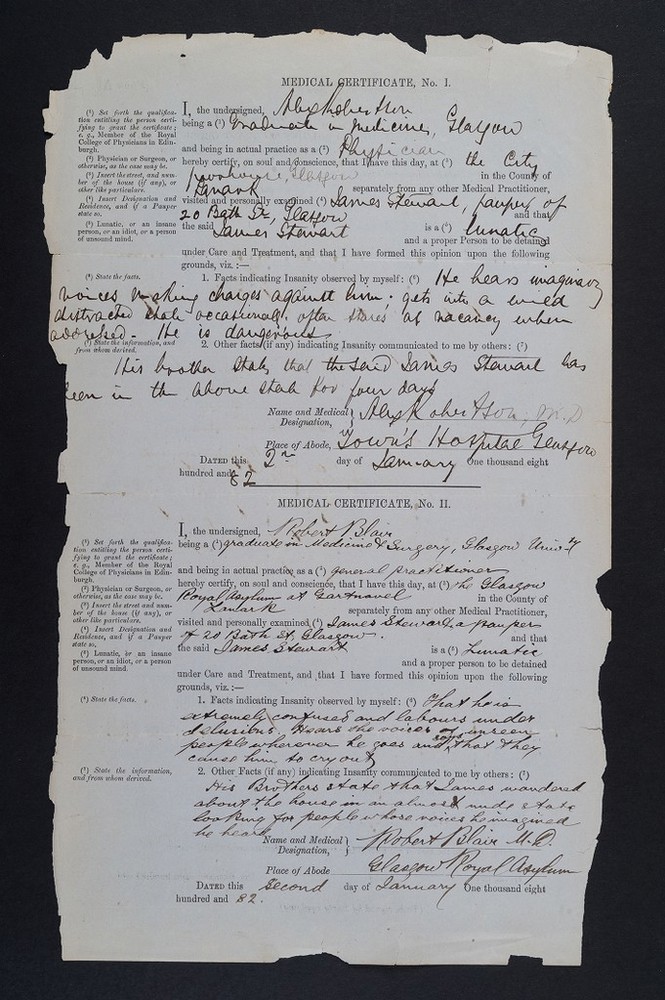 MEDICAL CERTIFICATE, No. I.
(¹) Set forth the qualifica-
tion entitling the person certi-
fying to grant the certificate;
e.g., Member of the Royal
College of Physicians in Edin-
burgh.
(²) Physician or Surgeon, or
otherwise, as the case may be.
(³) Insert the street and num-
ber of the house (if any), or
other like particulars.
(⁴) Insert Designation and
Residence, and if a Pauper
state so.
(⁵) Lunatic, or an insane
person, or an idiot, or a person
of unsound mind.
I, the undersigned, Alex Robertson
being a (¹) Graduate in medicine, Glasgow
and being in actual practice as a (²) Physician
hereby certify, on soul and conscience, that I have this day, at (³) the City
poorhouse, Glasgow in the County of
Lanark separately from any other Medical Practitioner,
visited and personally examined (⁴) James Stewart, pauper of
20 Bath St, Glasgow and that
the said James Stewart is a (⁵) lunatic
and a proper Person to be detained
under Care and Treatment, and that I have formed this opinion upon the following
grounds, viz.:—
(⁶) State the facts.
1. Facts indicating Insanity observed by myself: (⁶) He hears imaginary
voices making charges against him; gets into a wild
distracted state occasionally, often stares at vacancy when
addressed. He is dangerous
(⁷) State the information, and
from whom derived.
2. Other facts (if any) indicating Insanity communicated to me by others: (⁷)
His brother states that the said James Stewart has
been in the above state for four days
Name and Medical Designation, Alex Robertson, M.D
Place of Abode, Town's Hospital Glasgow
DATED this 2nd day of January One thousand eight
hundred and 82
MEDICAL CERTIFICATE, No. II.
(¹) Set forth the qualifica-
tion entitling the person certi-
fying to grant the certificate;
e.g., Member of the Royal
College of Physicians in Edin-
burgh.
(²) Physician or Surgeon, or
otherwise, as the case may be.
(³) Insert the street and num-
ber of the house (if any), or
other like particulars.
(⁴) Insert Designation and
Residence, and if a Pauper
state so.
(⁵) Lunatic, or an insane
person, or an idiot, or a person
of unsound mind.
I, the undersigned, Robert Blair
being a (¹) graduate in Medicine & Surgery, Glasgow Univ'y
and being in actual practice as a (²) general practitioner
hereby certify, on soul and conscience, that I have this day, at (³) the Glasgow
Royal Asylum at Gartnavel in the County of
Lanark separately from any other Medical Practitioner,
visited and personally examined (⁴) James Stewart, a pauper
of 20 Bath St, Glasgow. and that
the said James Stewart is a (⁵) Lunatic
and a proper Person to be detained
under Care and Treatment, and that I have formed this opinion upon the following
grounds, viz.:—
(⁶) State the facts.
1. Facts indicating Insanity observed by myself: (⁶) That he is
extremely confused and labours under
delusions. Hears the voices of unseen
people wherever he goes and says that they
cause him to cry out
(⁷) State the information,
and from whom derived.
2. Other Facts (if any) indicating Insanity communicated to me by others: (⁷)
His Brothers state that James wandered
about the house in an almost nude state
looking for people whose voices he imagined
he heard
Name and Medical Designation, Robert Blair M.D.
Place of Abode Glasgow Royal Asylum
DATED this Second day of January One thousand eight
hundred and 82.